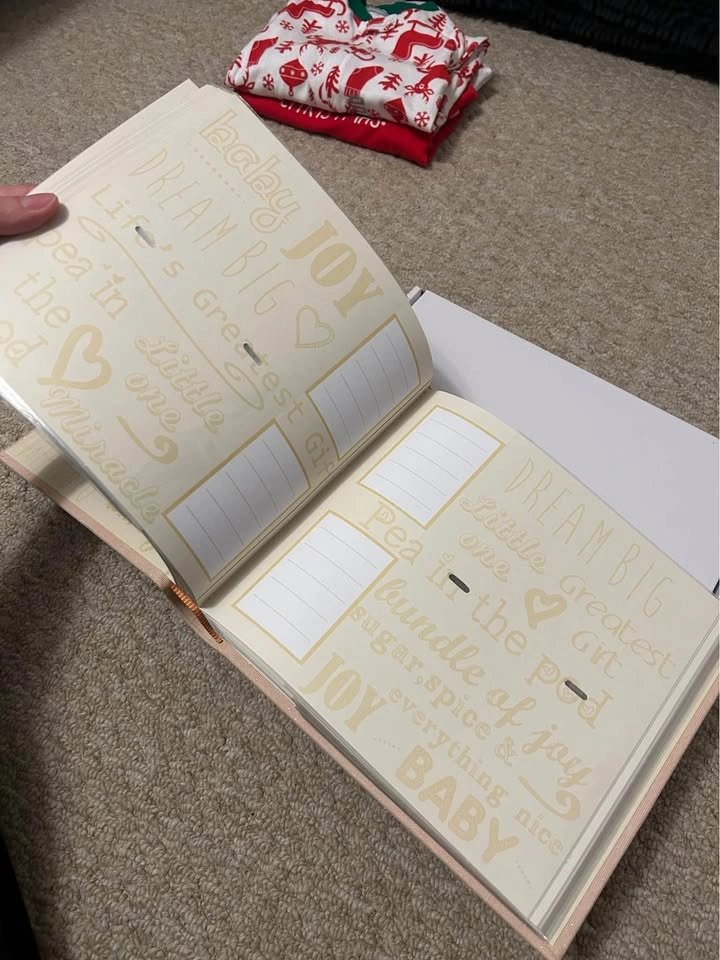 CHRISTMAS
baby
DREAM BIG
JOY
Life's Greatest Gift
pea in
the
Little
one
Miracle
DREAM BIG
Little
one
Greatest
Gift
Pea in the pod
bundle of joy
sugar, spice &
everything nice
JOY
BABY